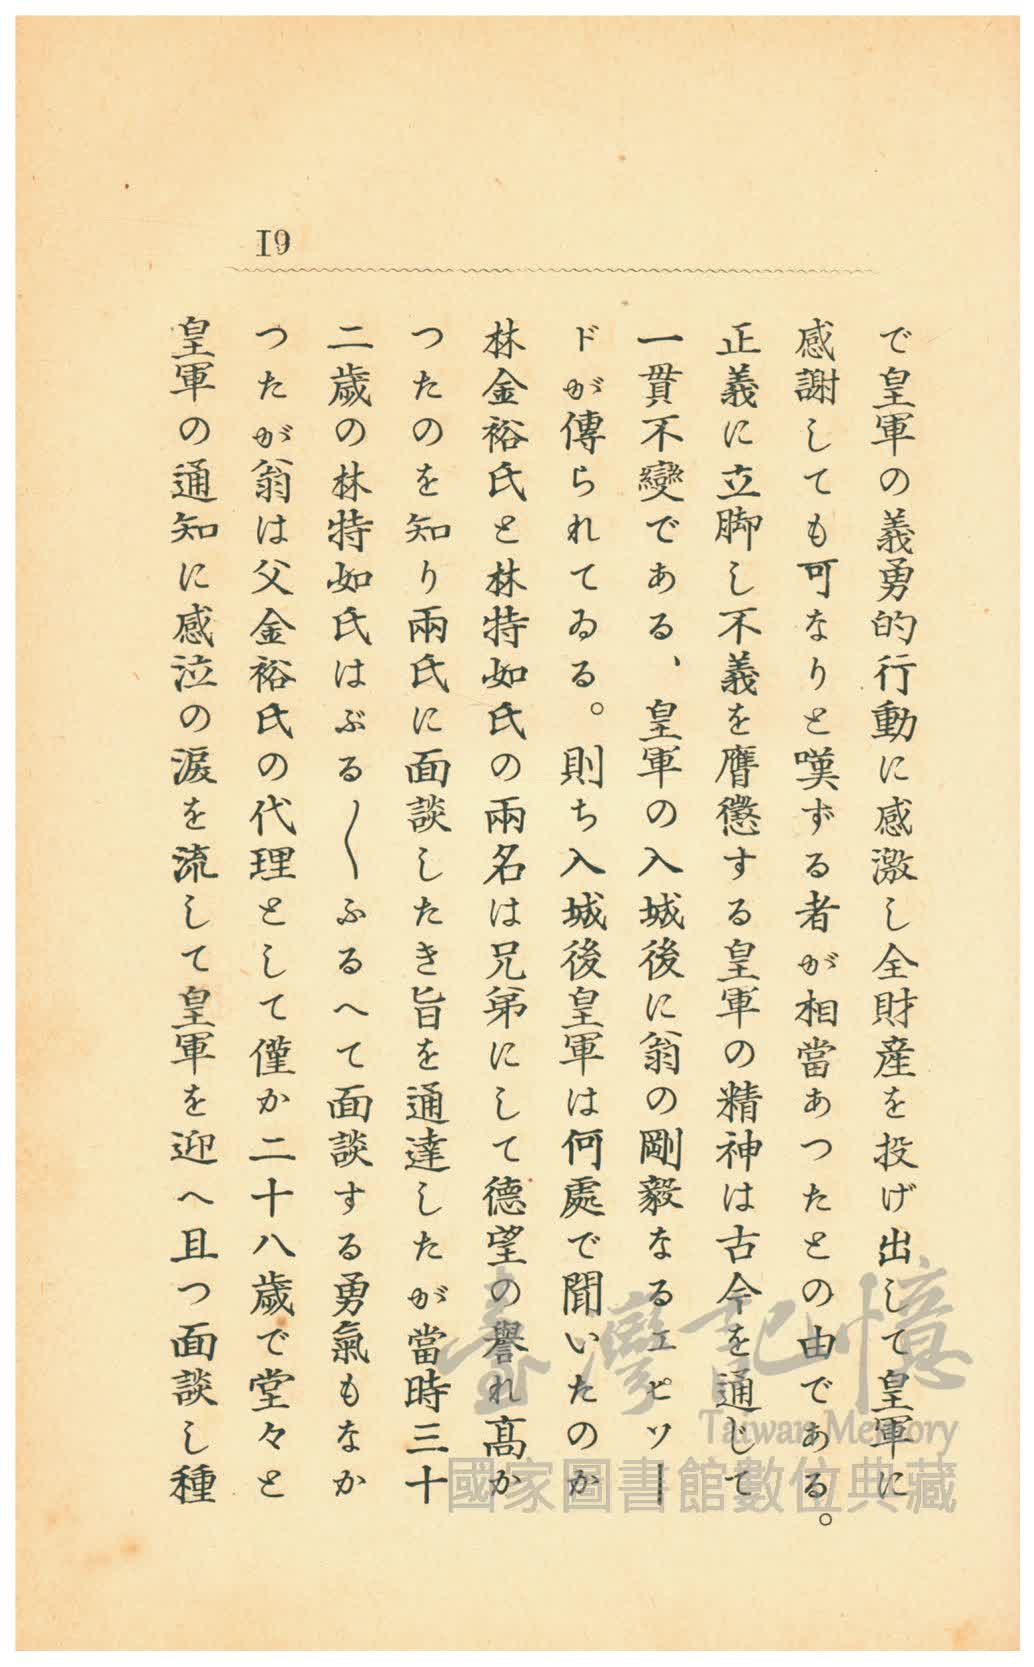 19
で皇軍の義勇的行動に感激し全財産を投げ出して皇軍に
感謝しても可なりと嘆ずる者が相當あつたとの由である。
正義に立脚し不義を膺懲する皇軍の精神は古今を通じて
一貫不變である、皇軍の入城後に翁の剛毅なるエピソー
ドが傳られてゐる。則ち入城後皇軍は何處で聞いたのか
林金裕氏と林特如氏の兩名は兄弟にして德望の譽れ高か
つたのを知り兩氏に面談したき旨を通達したが當時三十
二歲の林特如氏はぶる〱ふるへて面談する勇氣もなか
つたが翁は父金裕氏の代理として僅か二十八歲で堂々と
皇軍の通知に感泣の淚を流して皇軍を迎へ且つ面談し種
臺灣記憶
Taiwan Memory
國家圖書館數位典藏